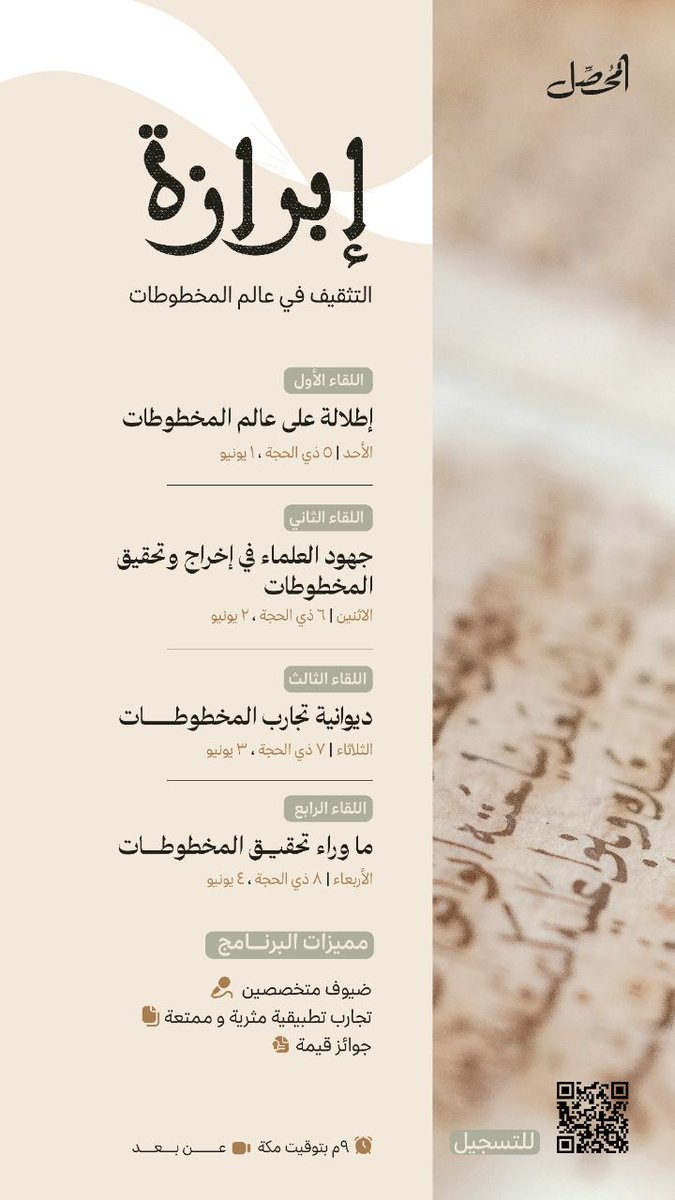 المُحصِّل
إبرازة
التثقيف في عالم المخطوطات
اللقاء الأول
إطلالة على عالم المخطوطات
الأحد | ٥ ذي الحجة ، ١ يونيو
اللقاء الثاني
جهود العلماء في إخراج وتحقيق
المخطوطات
الاثنين | ٦ ذي الحجة ، ٢ يونيو
اللقاء الثالث
ديوانية تجارب المخطوطـــات
الثلاثاء | ٧ ذي الحجة ، ٣ يونيو
اللقاء الرابع
ما وراء تحقيـق المخطوطـــات
الأربعاء | ٨ ذي الحجة ، ٤ يونيو
مميزات البرنــامج
ضيوف متخصصين
تجارب تطبيقية مثرية و ممتعة
جوائز قيمة
٩م بتوقيت مكة عـــن بــعــد
للتسجيل